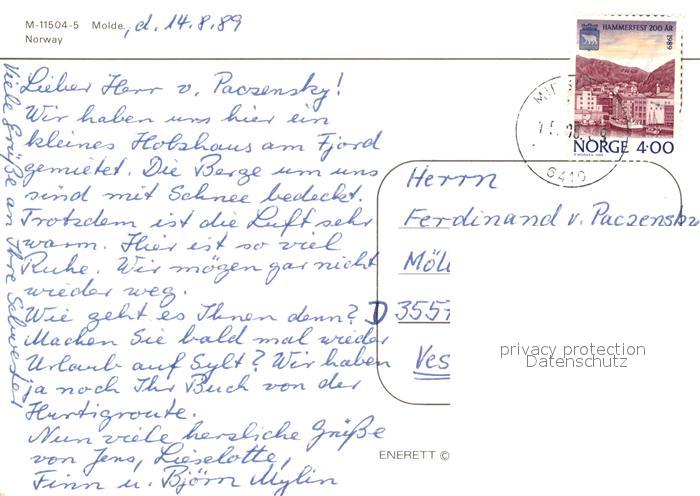 M-11504-5 Molde., d. 14.8.89
Norway
HAMMERFEST 200 ÅR
1989
NORGE 4·00
6410
Lieber Herr v. Paczensky!
Wir haben uns hier ein
kleines Holzhaus am Fjord
gemietet. Die Berge um uns
sind mit Schnee bedeckt.
Trotzdem ist die Luft sehr
warm. Hier ist so viel
Ruhe. Wir mögen gar nicht
wieder weg.
Wie geht es Ihnen denn?
Machen Sie bald mal wieder
Urlaub auf Sylt? Wir haben
ja noch Ihr Buch von der
Hurtigroute.
Nun viele herzliche Grüße
von Jens, Lieselotte,
Finn u. Björn Mylin
Viele Grüße an Ihre Schwester
Herrn
Ferdinand v. Paczensky
Möll
D 3557
Ves
privacy protection
Datenschutz
ENERETT ©